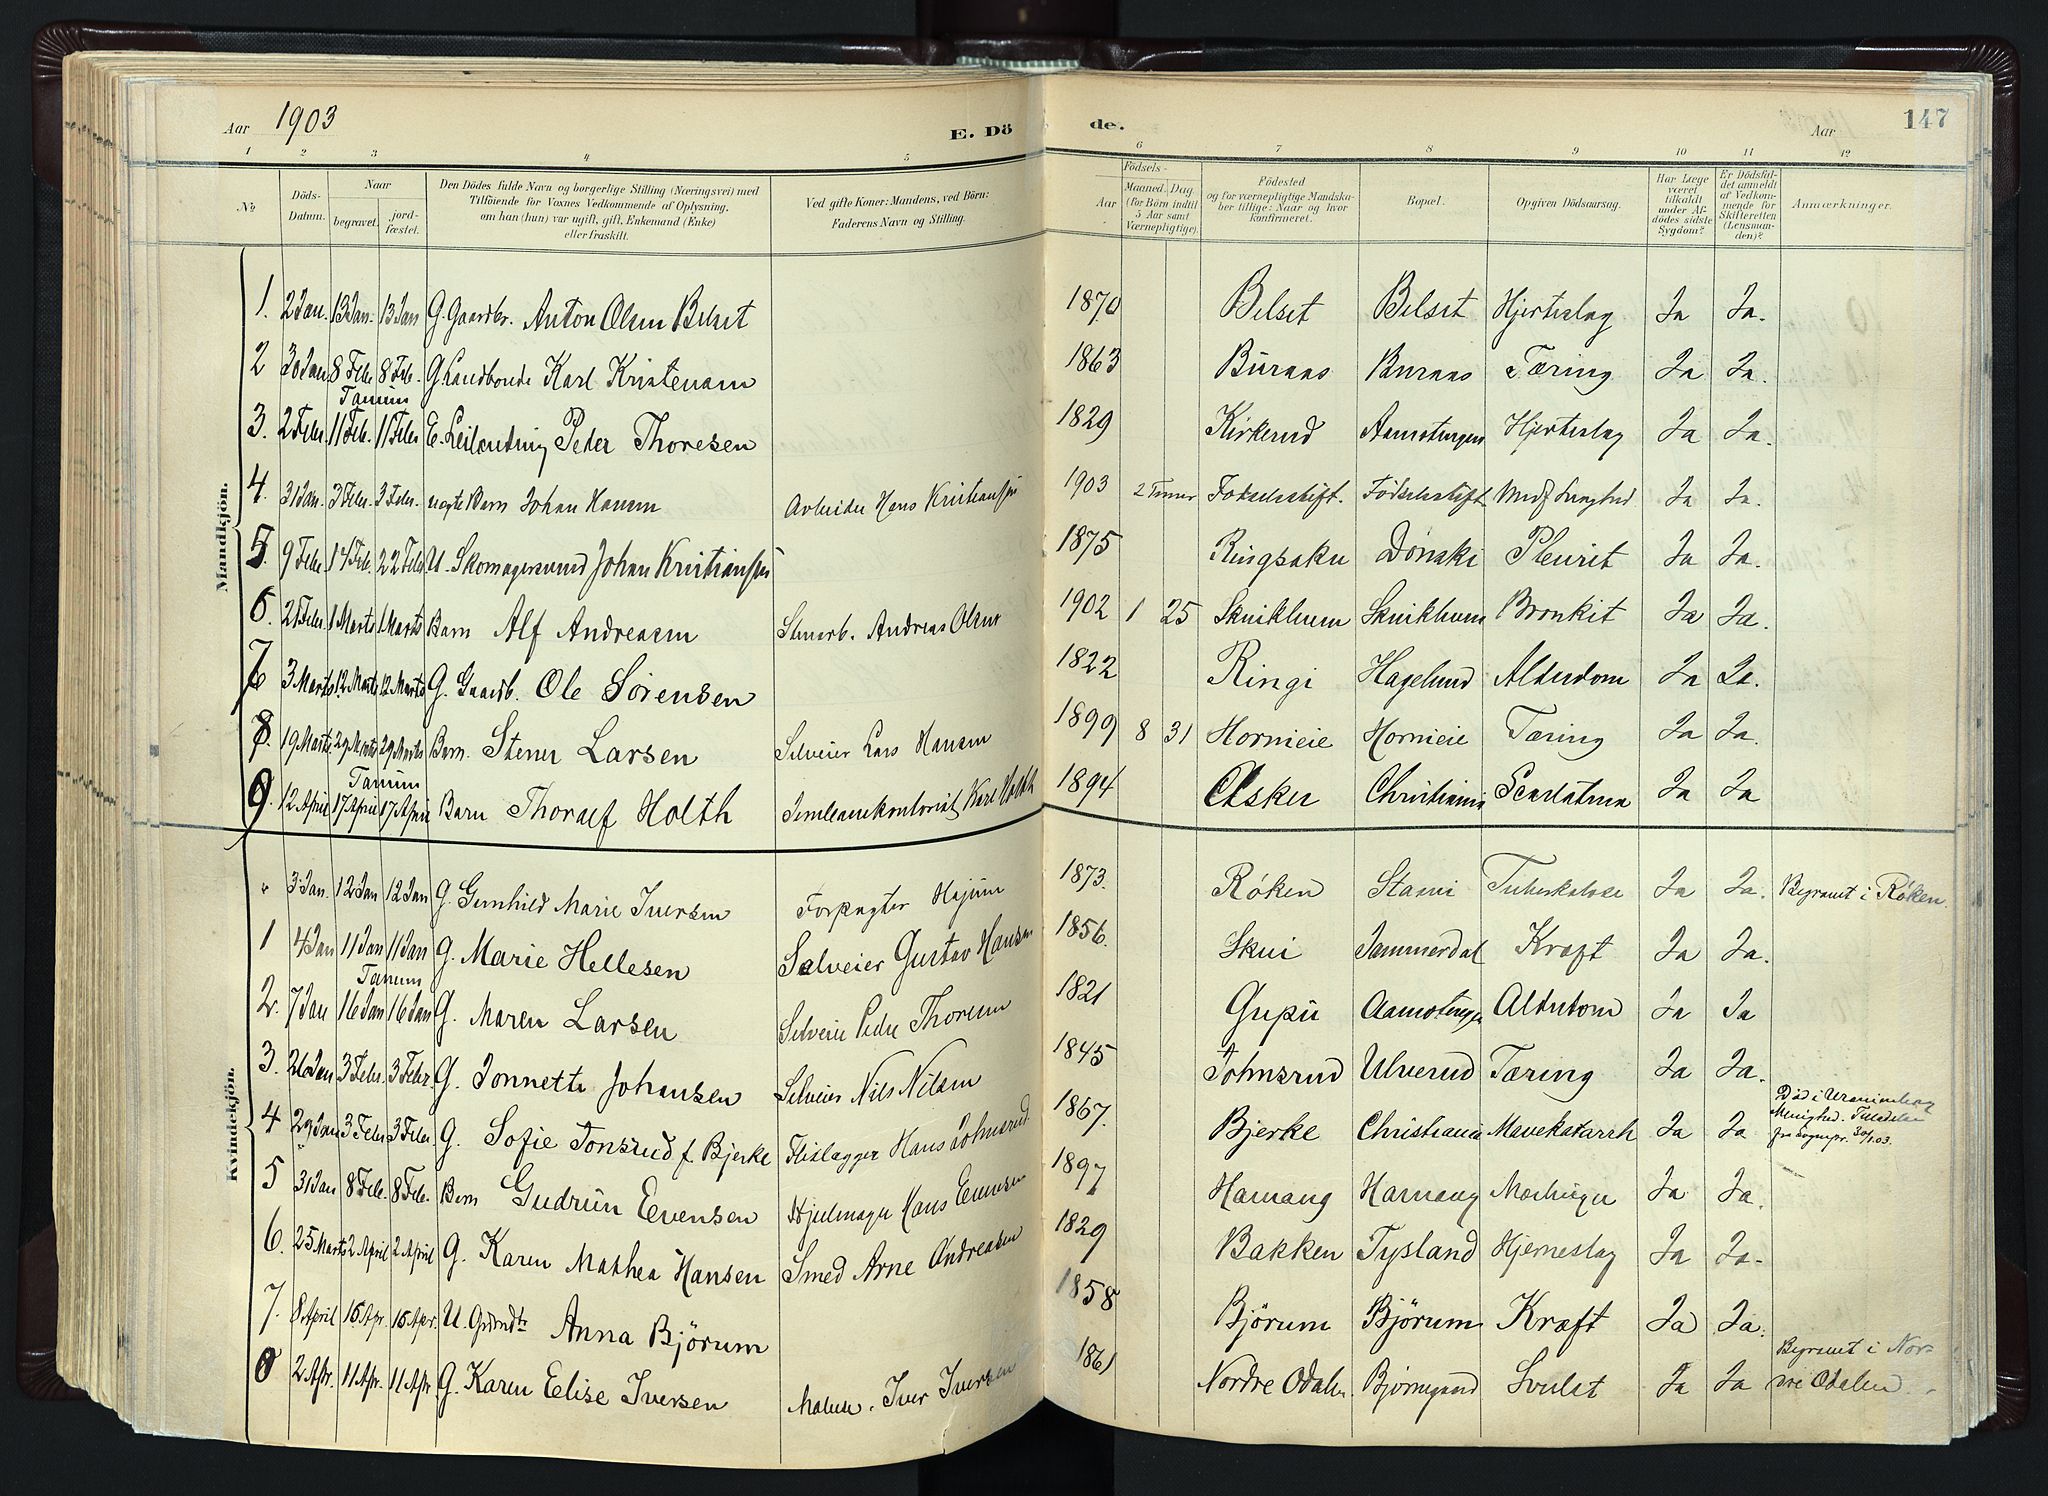 Aar 1903 E. Dö de. Aar 147
1 2 3 4 5 6 7 8 9 10 11 12
№ Döds-Datum. Naar begravet. jord-fæstet. Den Dödes fulde Navn og borgerlige Stilling (Næringsvei) med Tilföiende for Voxnes Vedkommende af Oplysning, om han (hun) var ugift, gift, Enkemand (Enke) eller fraskilt. Ved gifte Koner: Mandens, ved Börn: Faderens Navn og Stilling. Födsels- Aar Maaned. Dag. (for Börn indtil 5 Aar samt Værnepligtige). Födested og for værnepligtige Mandskaber tillige: Naar og hvor konfirmeret. Bopæl. Opgiven Dödsaarsag. Har Læge været tilkaldt under Afdödes sidste Sygdom? Er Dödsfaldet anmeldt af Vedkommende for Skifteretten (Lensmanden)? Anmærkninger.
Mandkjön.
1. 2 Jan. 13 Jan. 13 Jan G. Gaardbr. Anton Olsen Belset 1870 Belset Belset Hjerteslag Ja Ja.
2 30 Jan 8 Febr 8 Feb. G. Landbonde Karl Kristensen 1863 Buraas Buraas Tæring Ja Ja.
Tanum
3. 2 Febr. 11 Feb. 11 Febr E. Leilending Peder Thoresen 1829 Kirkerud Aamotengen Hjerteslag Ja Ja.
4. 31 Jan. 3 Febr. 3 Febr. uegte Barn Johan Hansen Arbeider Hans Kristiansen 1903 2 Timer Fødselsstift. Fødselsstift Medf. Svaghed Ja Ja.
5. 9 Febr. 14 Feb. 22 Febr U. Skomagersvend Johan Kristiansen 1875 Ringsaker Dønski Pleurit Ja Ja.
6. 21 Febr. 1 Marts 1 Marts Barn Alf Andreasen Stenarb. Andreas Olsen 1902 1 25 Skuikleven Skuikleven Bronkit Ja Ja.
7 3 Marts 12 Marts 12 Marts G. Gaardb. Ole Sørensen 1822 Ringi Hagelund Alderdom Ja Ja.
8. 19 Marts 29 Marts 29 Marts Barn. Stener Larsen Selveier Lars Hansen 1899 8 31 Hornieie Hornieie Tæring Ja Ja.
Tanum
9. 12 April 17 April 17 April Barn Thoralf Holth Jernbanekontorist Karl Holth 1894 Asker Christiania Scarlatina Ja Ja
Kvindekjön.
" 3 Jan. 12 Jan 12 Jan G. Gunhild Marie Iversen Forpagter Hajum 1873. Røken Stavi Tuberkulose Ja Ja. Begravet i Røken.
1 4 Jan 11 Jan 11 Jan G. Marie Hellesen Selveier Gustav Hansen 1856. Skui Jammerdal Kræft Ja Ja.
Tanum
2. 7 Jan 16 Jan 16 Jan G. Maren Larsen Selveier Peder Thoresen 1821 Gupu Aamotengen Alderdom Ja Ja
3. 26 Jan 3 Febr. 3 Febr G. Jonnette Johansen Selveier Nils Nilsen 1845 Johnsrud Ulverud Tæring Ja Ja.
4 29 Jan 3 Febr 3 Febr. G. Sofie Jonsrud f. Bjerke Flislægger Hans Johnsrud 1867. Bjerke Christiania Mavekatarrh Ja Ja Død i Uranienborg Menighed. Tilladelse fra sognepr. 30/1 03.
5 31 Jan 8 Feb. 8 Feb. Barn Gudrun Evensen Hjulmager Hans Evensen 1897 Hamang Harnang Mæslinger Ja Ja.
6. 25 Marts 2 April 2 April G. Karen Mathea Hansen Smed Arne Andreasen 1829 Bakken Tysland Hjerneslag Ja Ja.
7. 8 April 15 Apr. 15 Apr. U. Grdmdtr Anna Bjørum 1858 Bjørum Bjørum Kræft Ja Ja.
8 2 Apr. 11 Apr. 11 Apr G. Karen Eelise Iversen Maleren. Iver Iversen 1861 Nordre Odalen. Bjørnegaard Svulst Ja Ja Begravet i Nordre Odalen.